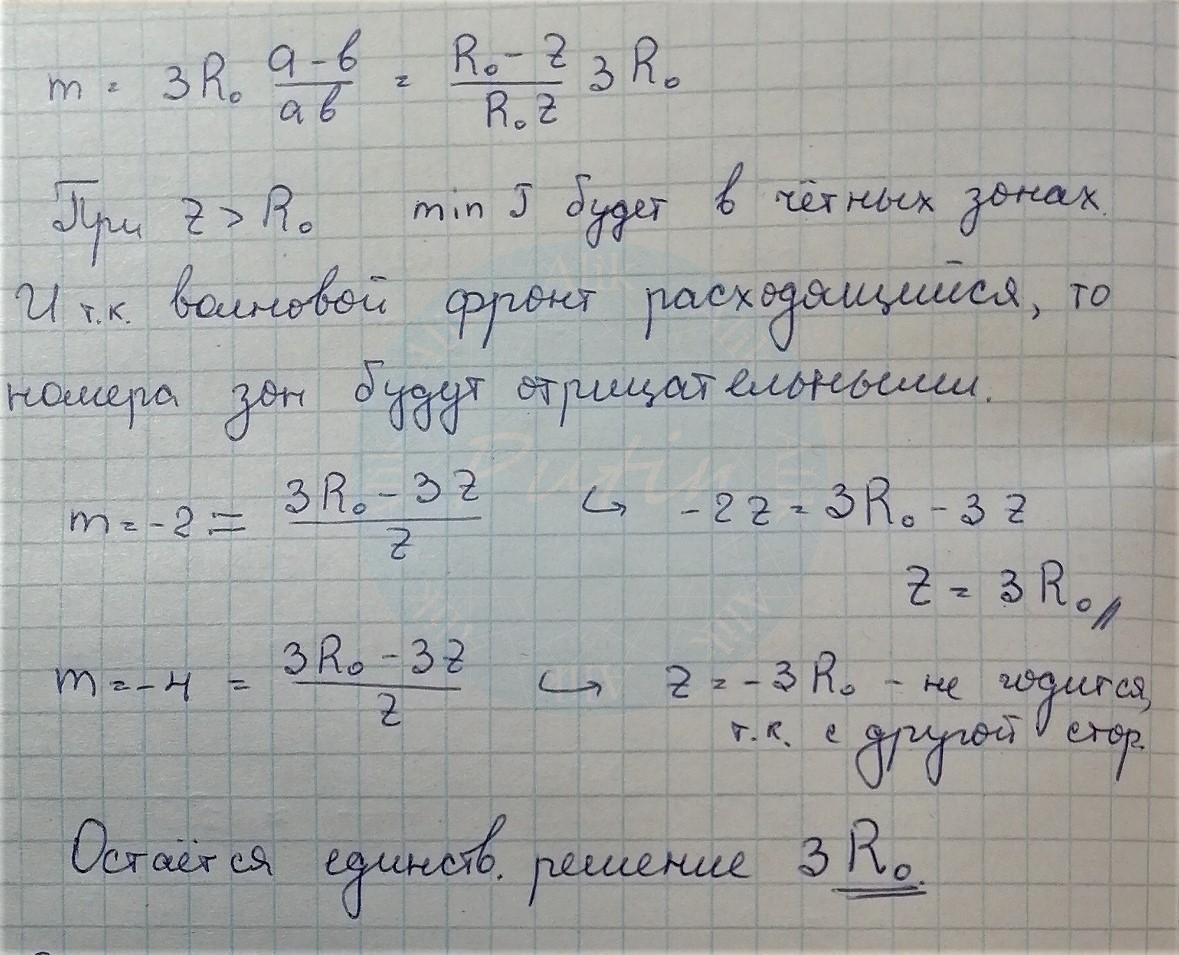 m = 3R₀ (a-b)/(ab) = (R₀-z)/(R₀z) 3R₀
При z > R₀ min J будет в чётных зонах.
И т.к. волновой фронт расходящийся, то
номера зон будут отрицательными.
m = -2 = (3R₀-3z)/z ↪ -2z = 3R₀-3z
z = 3R₀//
m = -4 = (3R₀-3z)/z ↪ z = -3R₀ - не годится,
т.к. с другой стор.
Остаётся единств. решение 3R₀.